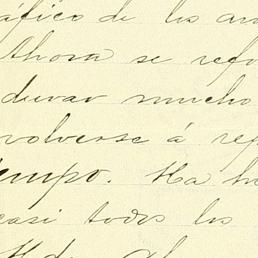 áfico de los an
Ahora se refu
durar mucho
volverse á rep
tiempo. Ha h
casi todos los